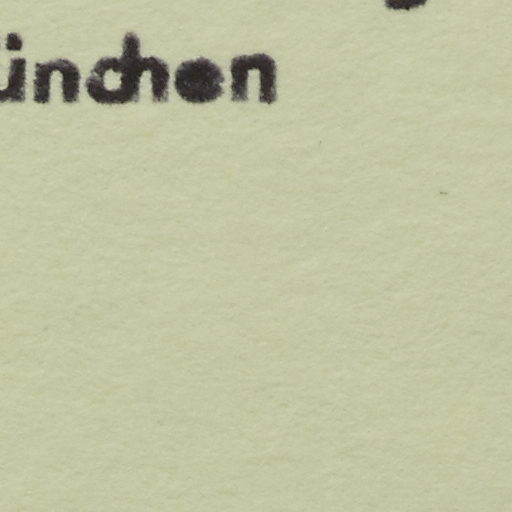 ünchen